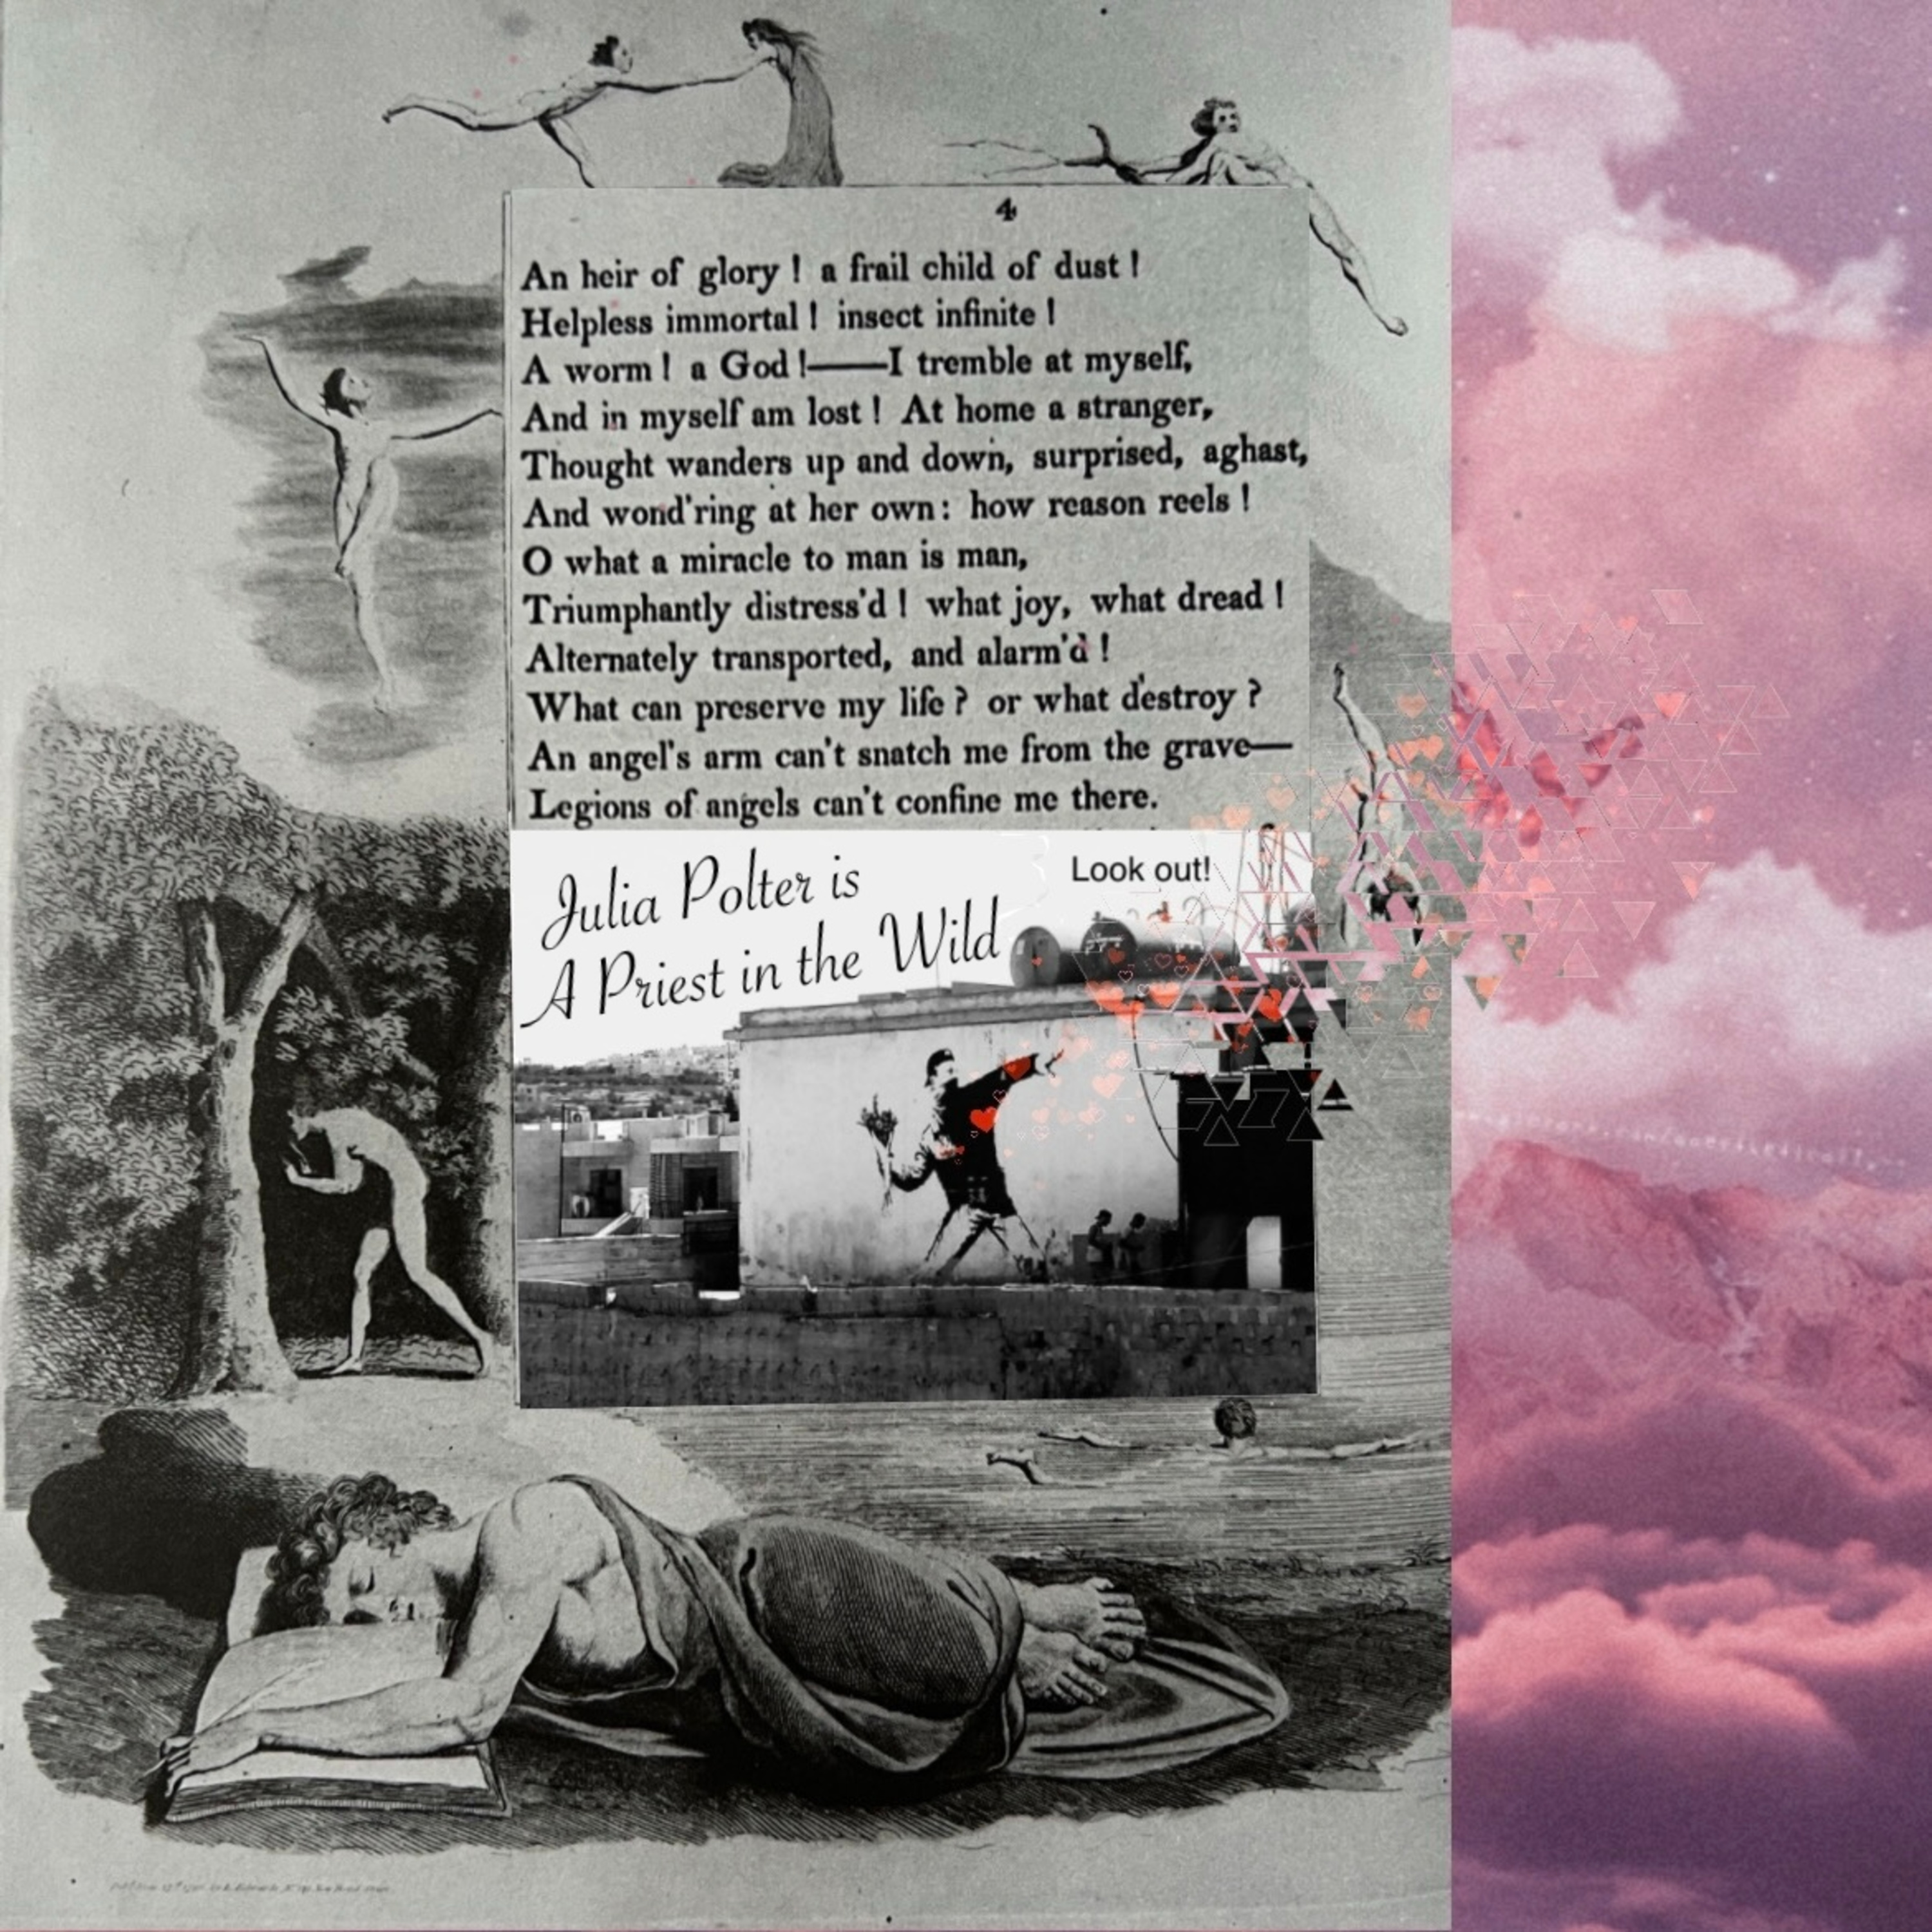 4
An heir of glory ! a frail child of dust !
Helpless immortal ! insect infinite !
A worm ! a God !——I tremble at myself,
And in myself am lost ! At home a stranger,
Thought wanders up and down, surprised, aghast,
And wond'ring at her own : how reason reels !
O what a miracle to man is man,
Triumphantly distress'd ! what joy, what dread !
Alternately transported, and alarm'd !
What can preserve my life ? or what destroy ?
An angel's arm can't snatch me from the grave—
Legions of angels can't confine me there.
Julia Polter is
A Priest in the Wild
Look out!